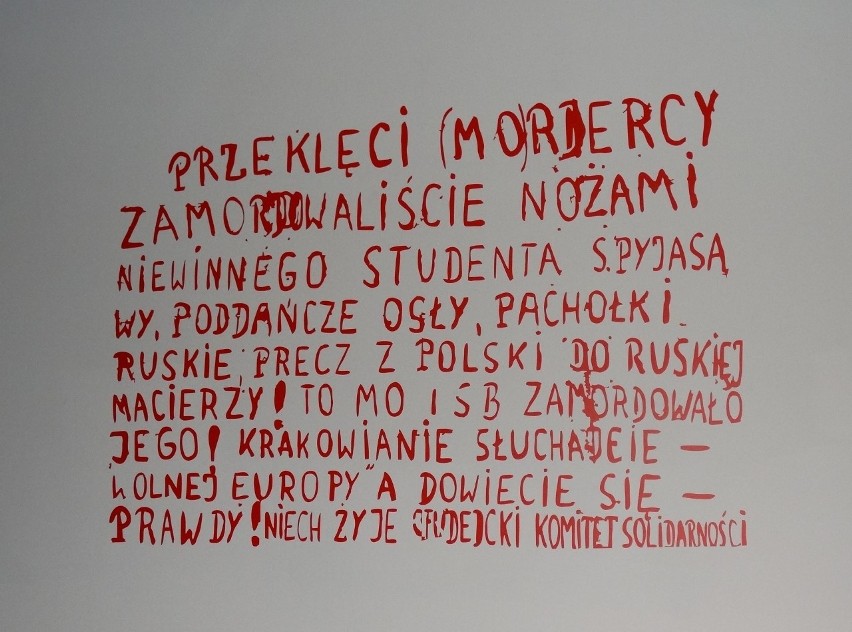 PRZEKLĘCI (MO)RDERCY
ZAMORDOWALIŚCIE NOŻAMI
NIEWINNEGO STUDENTA S.PYJASĄ
WY, PODDAŃCZE OSŁY, PACHOŁKI
RUSKIE, PRECZ Z POLSKI DO RUSKIEJ
MACIERZY! TO MO I SB ZAMORDOWAŁO
JEGO! KRAKOWIANIE SŁUCHAJCIE –
WOLNEJ EUROPY" A DOWIECIE SIĘ –
PRAWDY! NIECH ŻYJE STUDEJCKI KOMITET SOLIDARNOŚCI